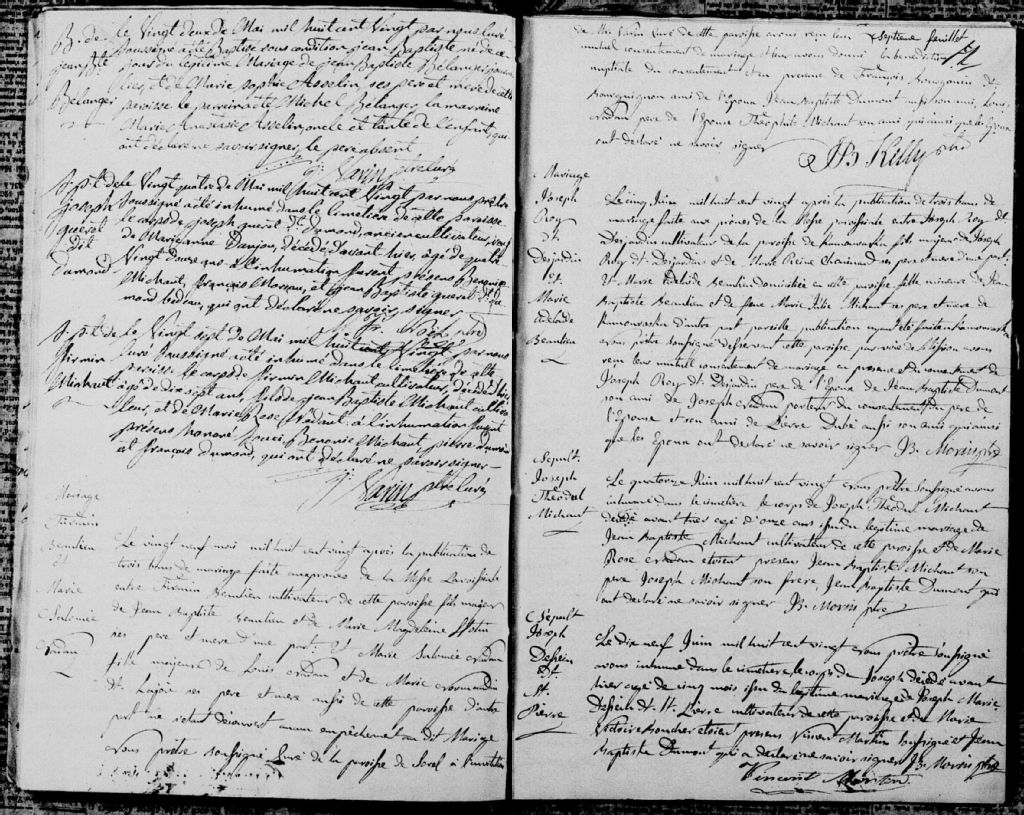 B. de
jean Bte
Bélanger
le Vingt deux de Mai mil huit cent Vingt par nous curé
soussigné a été Baptisé sous condition jean Baptiste né de ce
jour du légitime Mariage de jean Baptiste Bélanger journa
lier et de Marie sophie Asselin, ses père et mère de cette
paroisse le parein a été Michel Bélanger la marraine
Marie Anastasie Asselin oncle et tante de l'enfant qui
ont déclaré ne savoir signer, le père absent
Varin ptre Curé
Spt. de
joseph
guéret
dit
Dumond
le Vingt quatre de Mai mil huit cent Vingt par nous prêtre
soussigné a été inhumé dans le cimetière de cette paroisse
le corps de joseph guéret dt. Dumond ancien cultivateur, veuf
de Marieanne Danjou, décédé d'avant hier, agé de quatre
Vingt douze ans à l'inhumation furent présens Benonie
Michaut, François Moreau, et jean Baptiste guéret dt. Du
mond bedeau, qui ont déclaré ne savoir signer
Spt. de
Firmin
Michaut
le Vingt sept de Mai mil huit cent Vingt par nous
Curé soussigné a été inhumé dans le cimetière de cette
paroisse le corps de Firmin Michaut cultivateur, décédé hier
agé de dix sept ans, fils de jean Baptiste Michaut cultiva
teur, et de Marie Rose Crédant à l'inhumation furent
présens honoré Benonie Michaut, pierre dumond
et françois dumond, qui ont déclaré ne savoir signer
Varin ptre Curé
Mariage
Firmin
Beaulieu
et
Marie
Salomée
Le vingt neuf mai mil huit cent vingt après la publication de
trois bans de mariage faite aux prônes de la Messe Paroissiale
entre Firmin Beaulieu cultivateur de cette paroisse fils majeur
de Jean Baptiste Beaulieu et de Marie Magdeleine
ses père et mère d'une part; Et Marie Salomée
fille majeure de Louis et de Marie
dt. Lajoie ses père et mère aussi de cette paroisse d'autre
part ne s'étant découvert aucun empêchement au dit Mariage
nous prêtre soussigné Curé de la paroisse de Sorel à l'invitation
Septieme feuillet
de Mr. Varin Curé de cette paroisse avons reçu leur
mutuel consentement de mariage et leur avons donné la bénédiction
nuptiale du consentement et en présence de François
Bourguignon ami de l'époux Jean Baptiste Dumont aussi son ami, Louis
père de l'Épouse Théophile Michaut son ami qui ainsi que les Époux
ont déclaré ne savoir signer
JB Kelly ptre
Mariage
Joseph
Roy
dt.
Desjardin
et
Marie
Adelaïde
Beaulieu
Le cinq Juin mil huit cent vingt après la publication de trois bans de
mariage faite aux prônes de la Messe paroissiale entre Joseph Roy dt.
Desjardin cultivateur de la paroisse de Kamouraska fils majeur de Joseph
Roy dt. Desjardin et de Marie Reine Chouinard ses père et mère d'une part;
Et Marie Adelaide Beaulieu domiciliée en cette paroisse fille mineure de Jean
Baptiste Beaulieu et de Michaut ses père et mère de
Kamouraska d'autre part pareille publication ayant été faite à Kamouraska
nous prêtre soussigné desservant cette paroisse avons
reçu leur mutuel consentement de mariage en présence et du consentement de
Joseph Roy dt. Desjardin père de l'Époux de Jean Baptiste Dumont
son ami de Joseph porteur du consentement du père de
l'Épouse et son ami de Pierre Dubé aussi son ami qui ainsi
que les Époux ont déclaré ne savoir signer JB. Morin ptre
Sepult.
Joseph
Théodul
Michaut
Le quatorze Juin mil huit cent vingt nous prêtre soussigné avons
inhumé dans le cimetière le corps de Joseph Théodul Michaut
décédé avant hier agé d'onze ans issu du légitime mariage de
Jean Baptiste Michaut cultivateur de cette paroisse et de Marie
Rose étoient présens Jean Baptiste Michaut son
père Joseph Michaut son frère, Jean Baptiste Dumont qui
ont déclaré ne savoir signer JB. Morin ptre
Sepult
Joseph
dt.
St.
Pierre
Le dix neuf Juin mil huit cent vingt nous prêtre soussigné
avons inhumé dans le cimetière le corps de Joseph décédé avant
hier agé de cinq mois issu du légitime mariage de Joseph Marie
dt. St. Pierre cultivateur de cette paroisse et de Marie
Victoire Boucher étoient présens Vincent Martin soussigné et Jean
Baptiste Dumont qui a déclaré ne savoir signer JB. Morin ptre
Vincent Martin